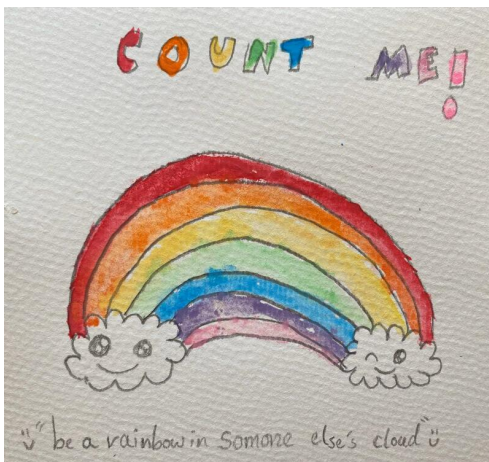 COUNT ME!
"be a rainbow in somone else's cloud"